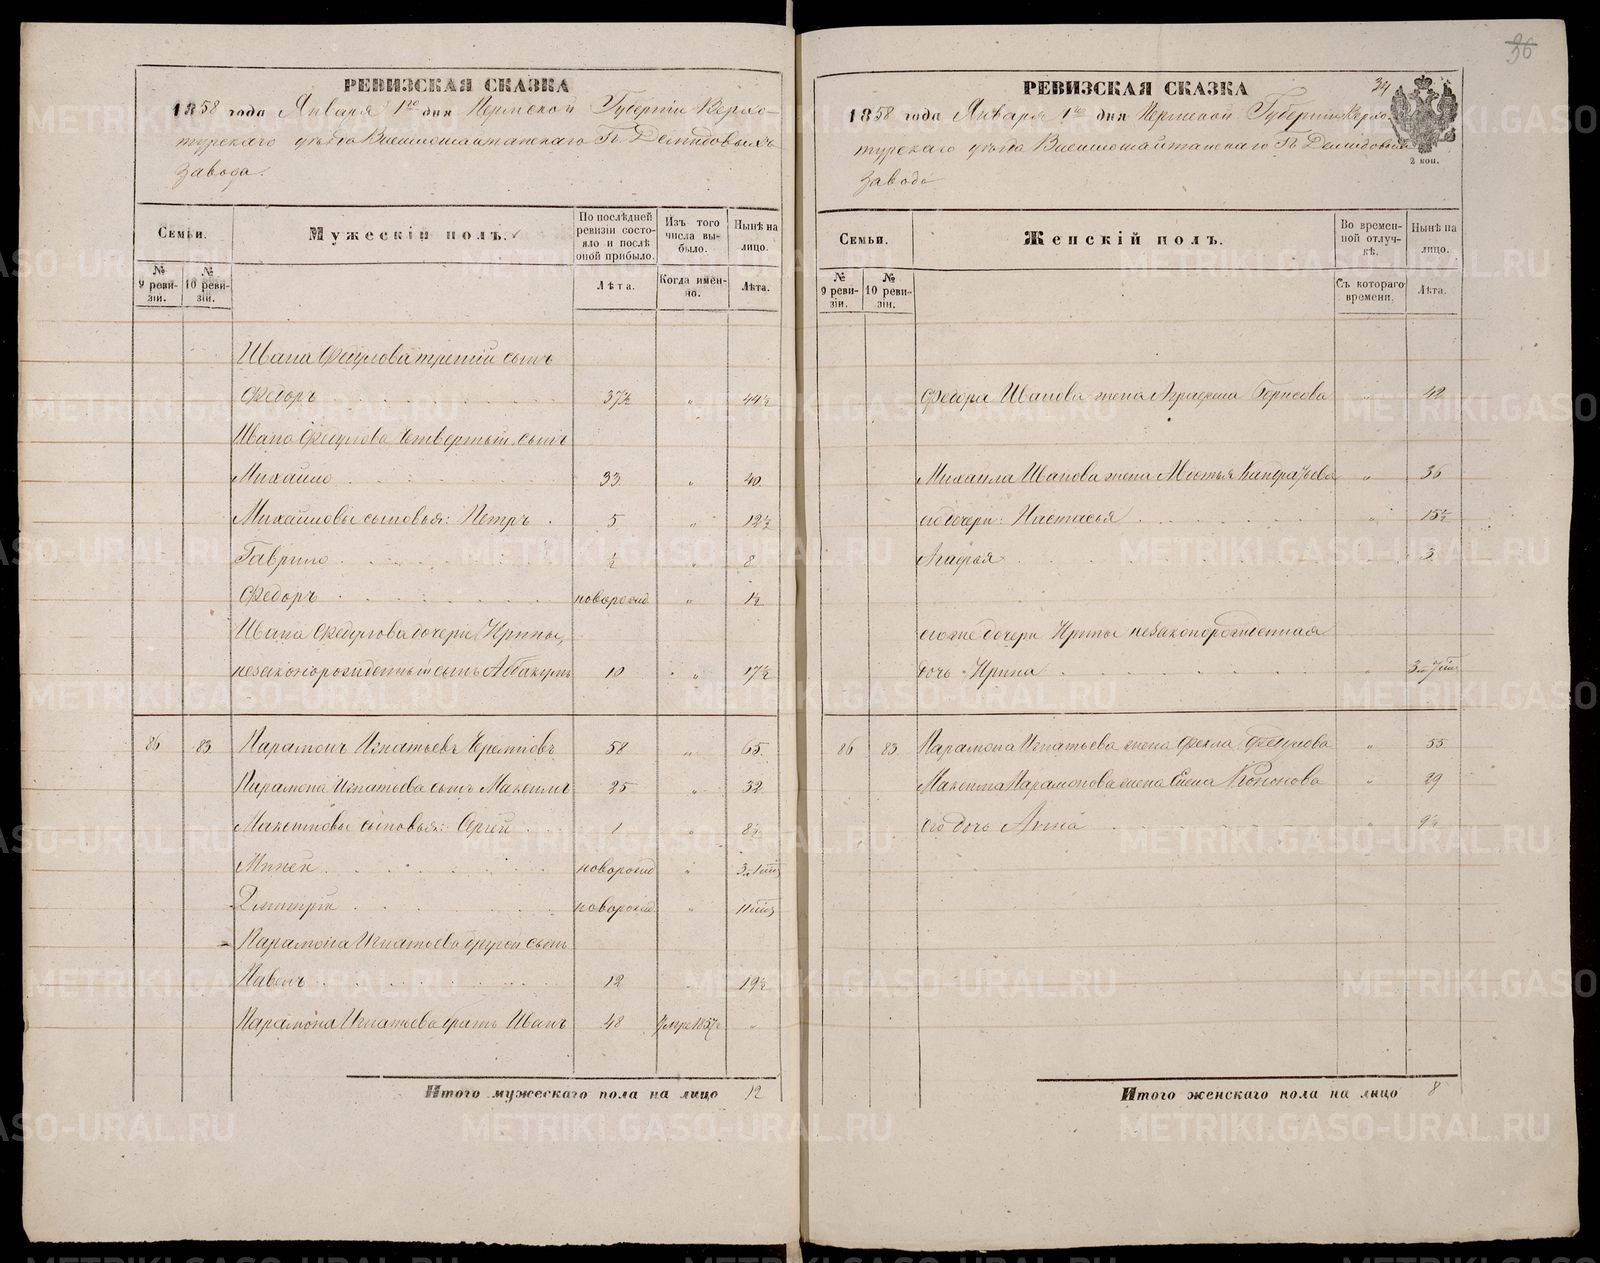 РЕВИЗСКАЯ СКАЗКА
1858 года Января 1го дня Пермской Губернии Верхо-
турскаго уѣзда Висимошайтанскаго Гг. Демидовыхъ
завода.
Семьи.
Мужескій полъ.
По послѣдней ревизіи состояло и послѣ оной прибыло.
Изъ того числа выбыло.
Нынѣ на лицо.
№ 9 ревизіи.
№ 10 ревизіи.
Лѣта.
Когда именно.
Лѣта.
Ивана Федулова третій сынъ
Федоръ 37½ „ 44½
Ивана Федулова четвертый сынъ
Михайло 33 „ 40
Михайловы сыновья: Петръ 5 „ 12½
Гаврило ½ „ 8
Федоръ новорожд „ 1½
Ивана Федулова дочери Ирины,
незаконорожденный сынъ Абакумъ 10 „ 17½
86 83 Парамонъ Игнатьевъ 58 „ 65
Парамона Игнатьева сынъ Максимъ 25 „ 32
Максимовы сыновья: Сергей 1 „ 8½
новорожд „
Дмитрій новорожд „
Парамона Игнатьева другой сынъ
Павелъ 12 19½
Парамона Игнатьева братъ Иванъ 48 умре 1857 „
Итого мужескаго пола на лицо 12
36
РЕВИЗСКАЯ СКАЗКА
34
1858 года Января 1го дня Пермской Губерніи Верхо
турскаго уѣзда Висимошайтанскаго Гг. Демидовыхъ
завода
2 коп.
Семьи.
Женскій полъ.
Во временной отлучкѣ.
Нынѣ на лицо.
№ 9 ревизіи.
№ 10 ревизіи.
Съ котораго времени.
Лѣта.
Федора Иванова жена Аграфена Борисова „ 42
Михаила Иванова жена „ 36
его дочери: Настасья „ 15½
Агафья „ 3
его же дочери Ирины незаконорожденная
дочь Ирина
86 83 Парамона Игнатьева жена Фекла Федулова „ 55
Максима Парамонова жена Елена Кононова „ 29
его дочь Анна „ 9½
Итого женскаго пола на лицо 8
METRIKI.GASO-URAL.RU